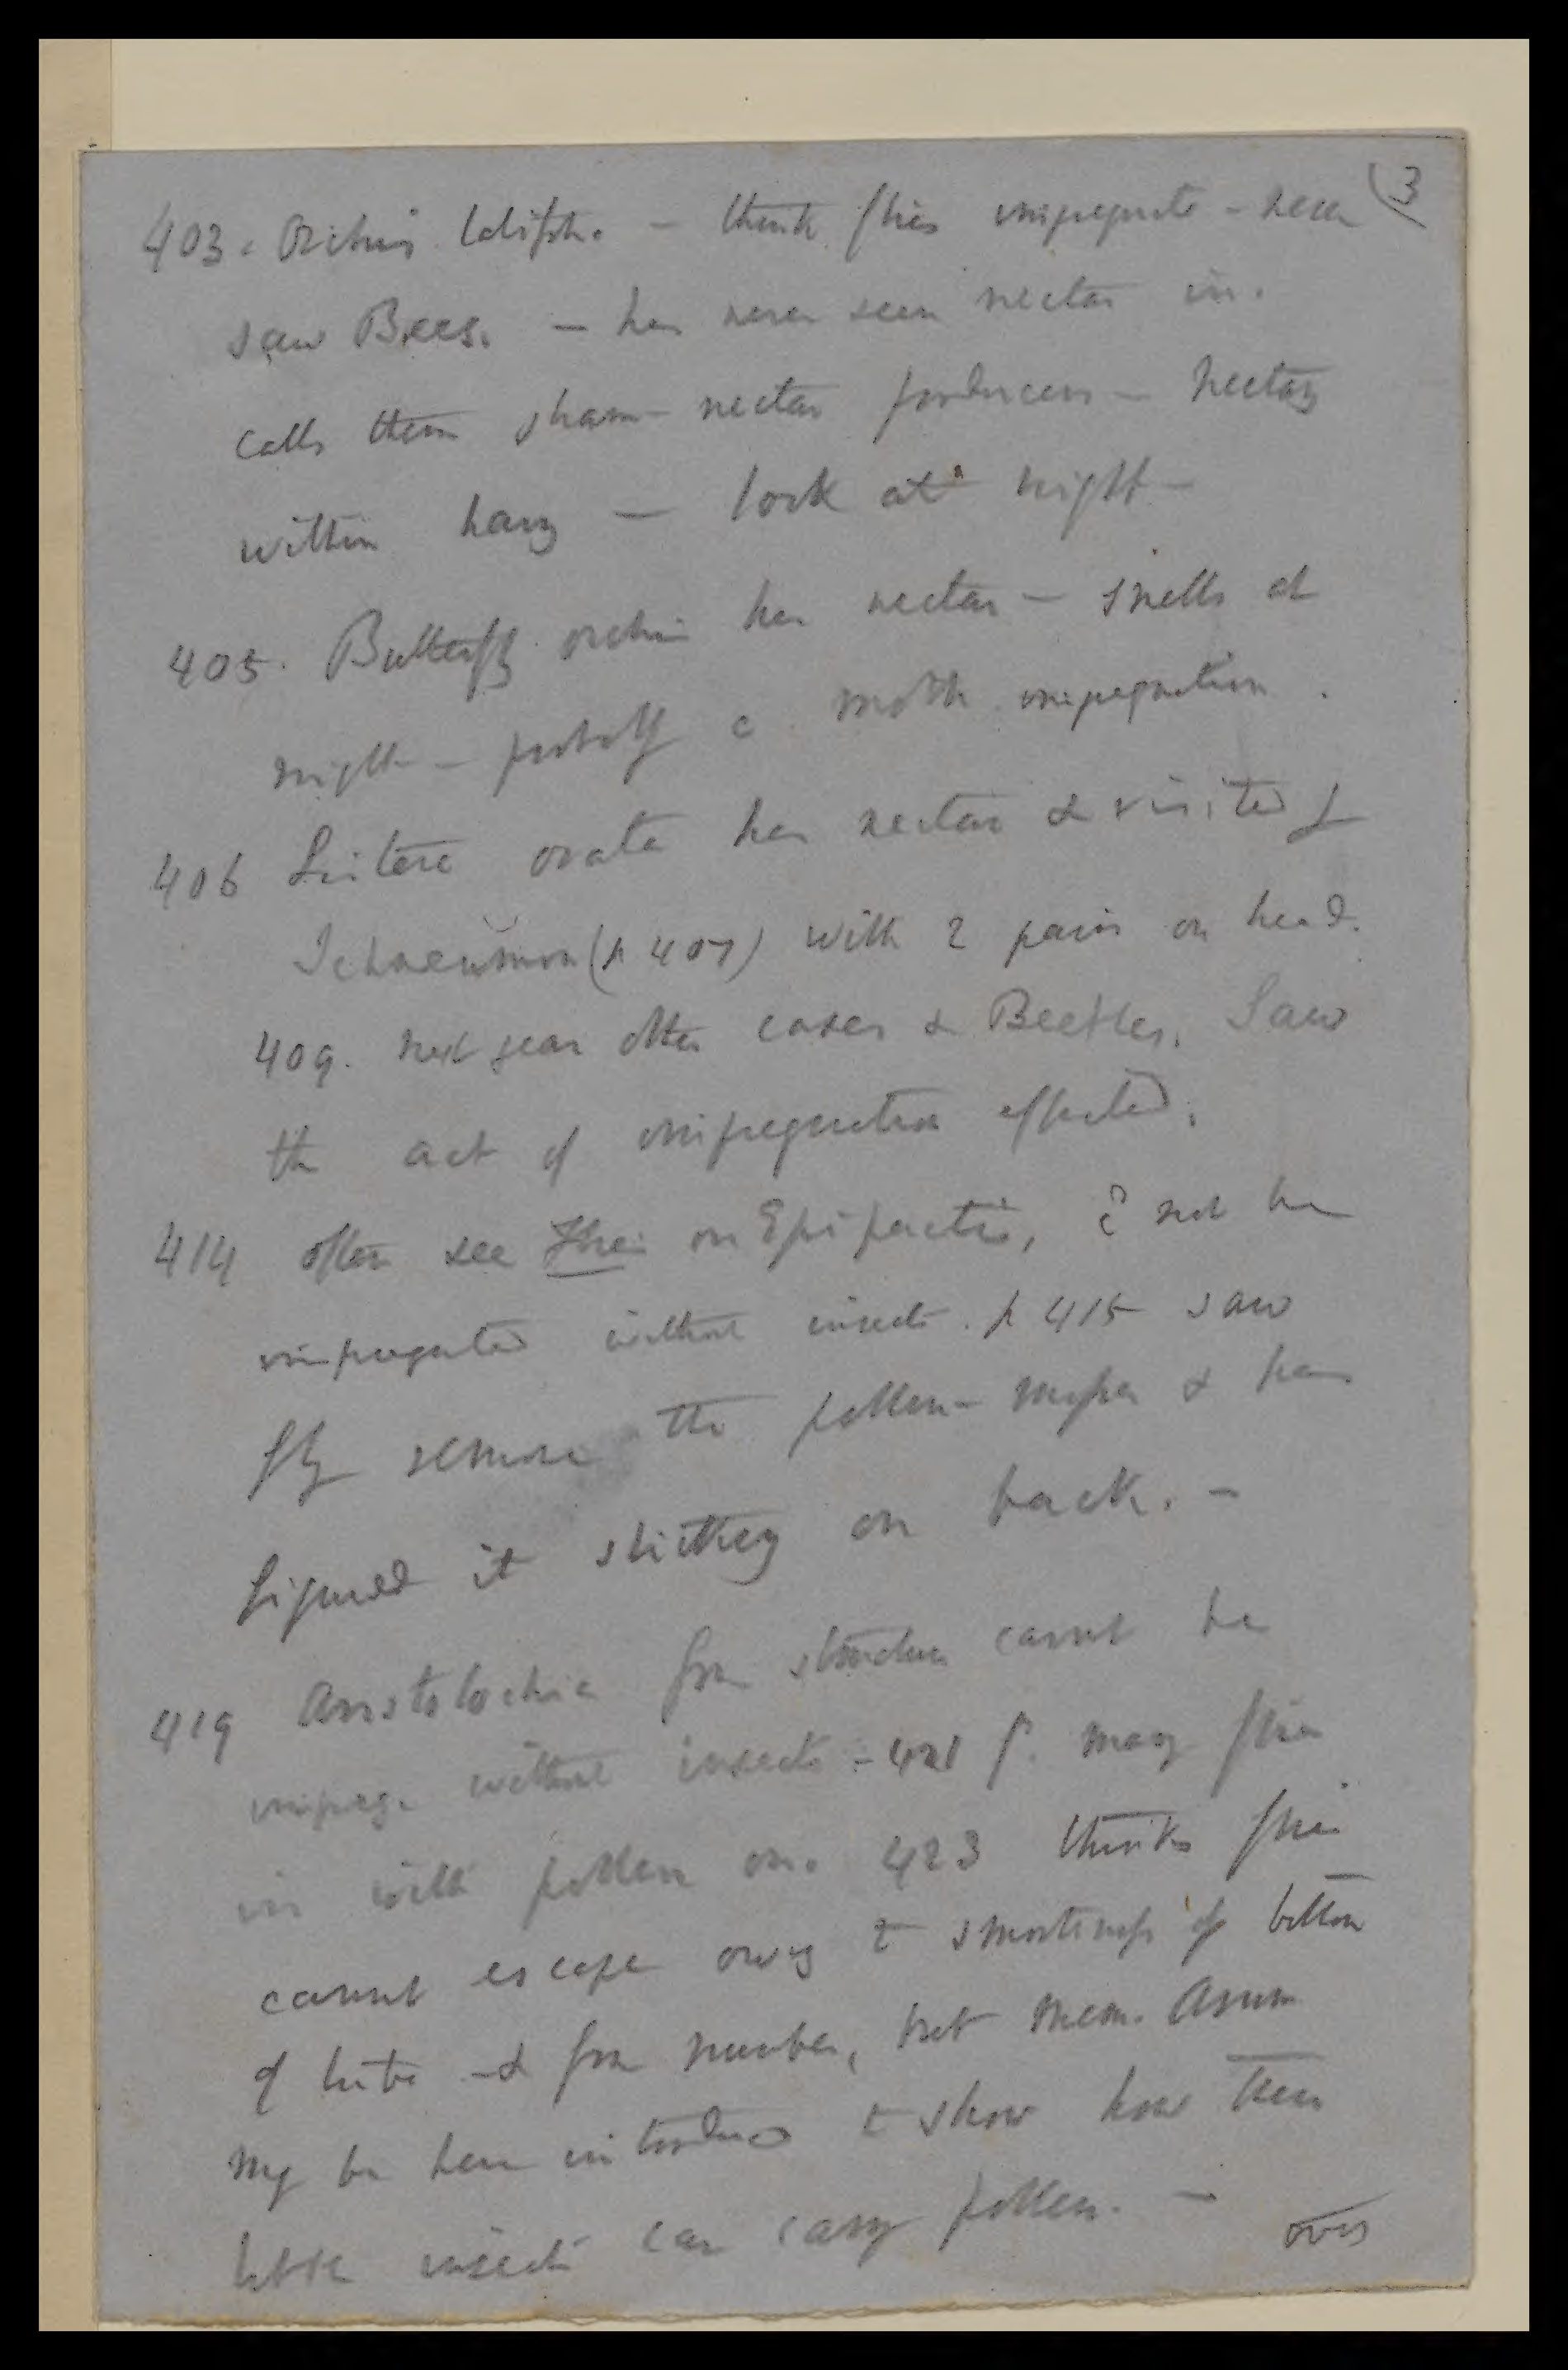 (3
403. Orchis latifol. — think flies impregnate — never
saw Bees. — has never seen nectar in.
calls them sham-nectar producers — Nectary
within hairy — look at night —
405. Butterfly orchis has nectar — smells at
night — probably a moth impregnation.
406 Listera ovata has nectar & visited by
Ichneumon (p 407) with 2 pairs on head.
409. next year other cases & Beetles. Saw
the act of impregnation effected.
414 often see flies on Epipactis, & not be
impregnated without insects. p 415 saw
fly remove the pollen-masses & has
figured it sticking on back. —
419 Aristolochia from structure cannot be
impreg. without insects — 421 f. many flies
in with pollen on. 423 thinks flies
cannot escape owing to smoothness of bottom
of tube & from number, but mem. Arum
may be here introduced to show how these
little insects can carry pollen. —
over